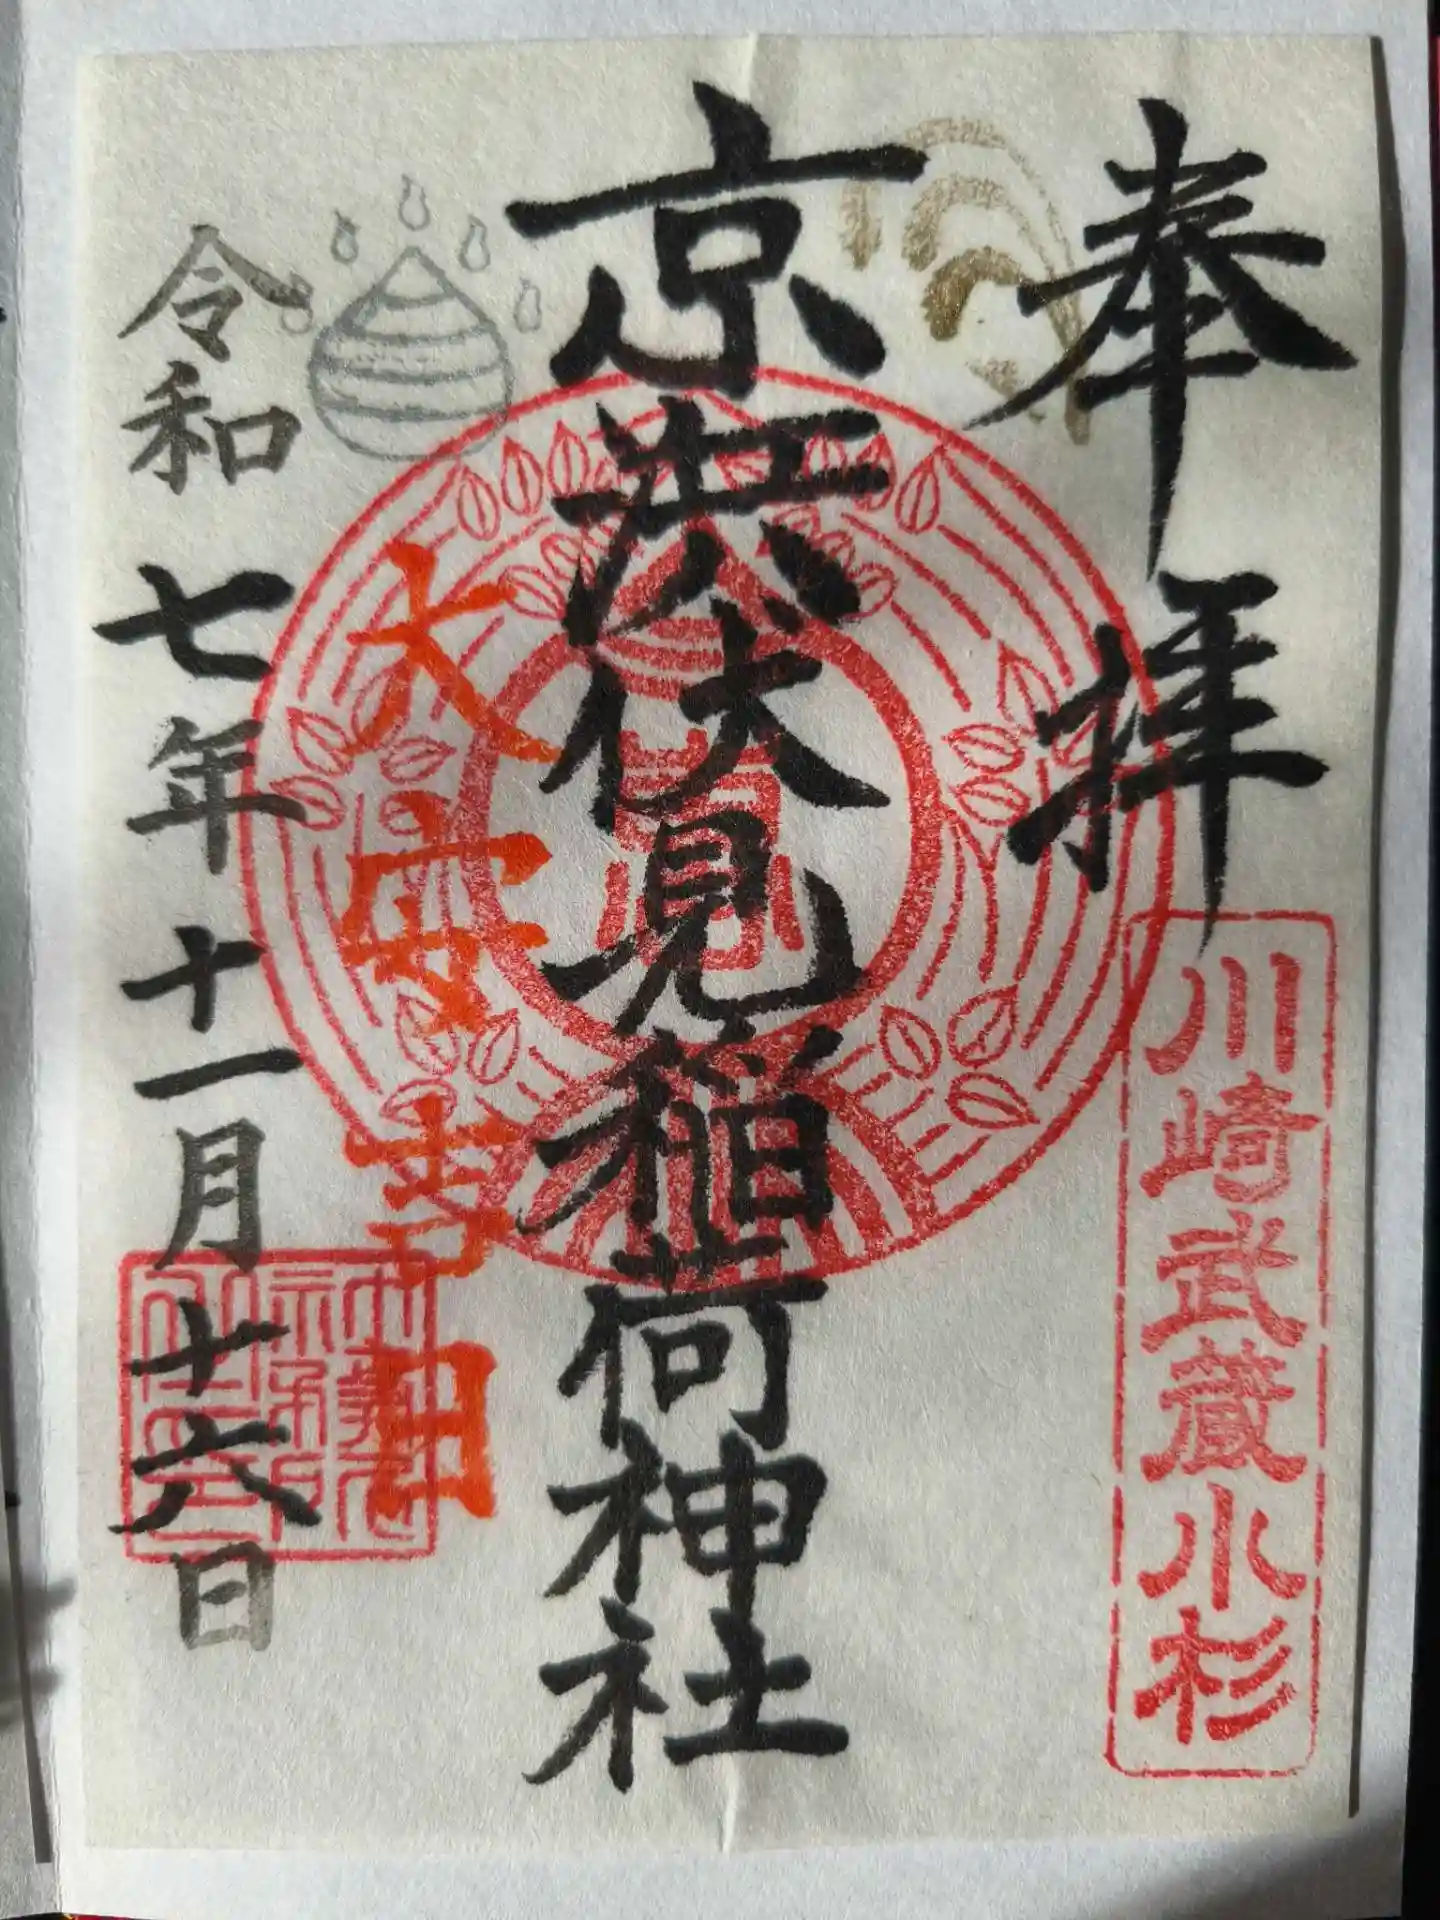 奉拝
川崎武蔵小杉
京濱伏見稲荷神社
大安吉日
令和七年十一月十六日